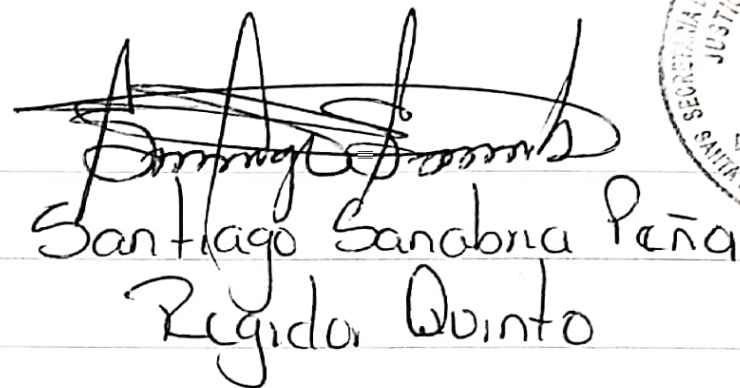 Santiago Sanabria Peña
Regidor Quinto
SECRETARIA D
JUSTI
SANTA